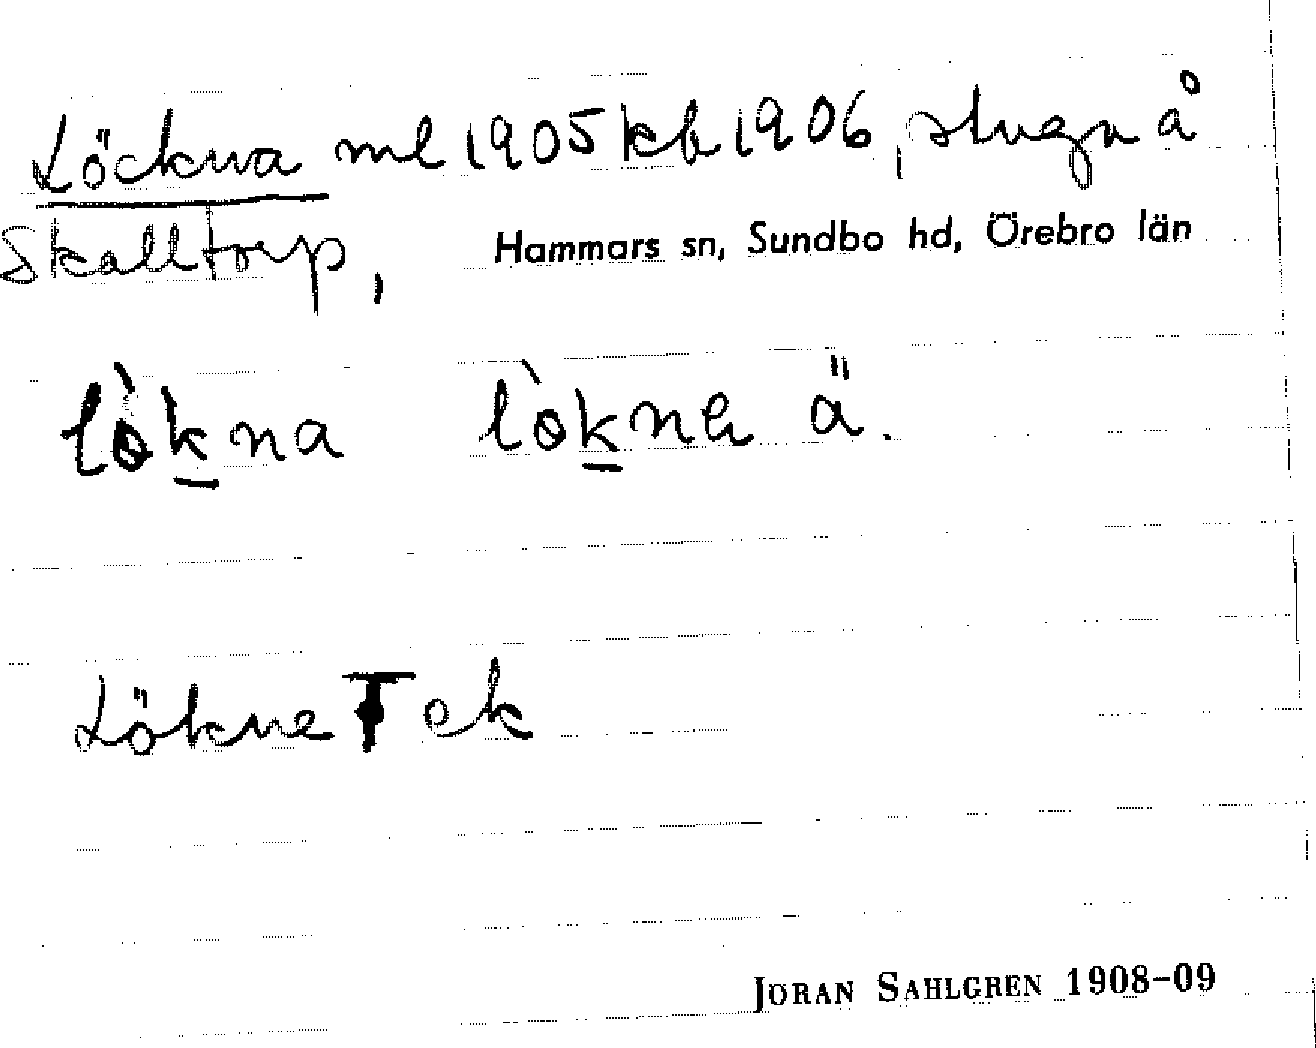 Löckna ml 1905 kb 1906, stuga å
Skalltorp, Hammars sn, Sundbo hd, Örebro län
lòkna lòkna ä.
Lökne Tek
JÖRAN SAHLGREN 1908-09